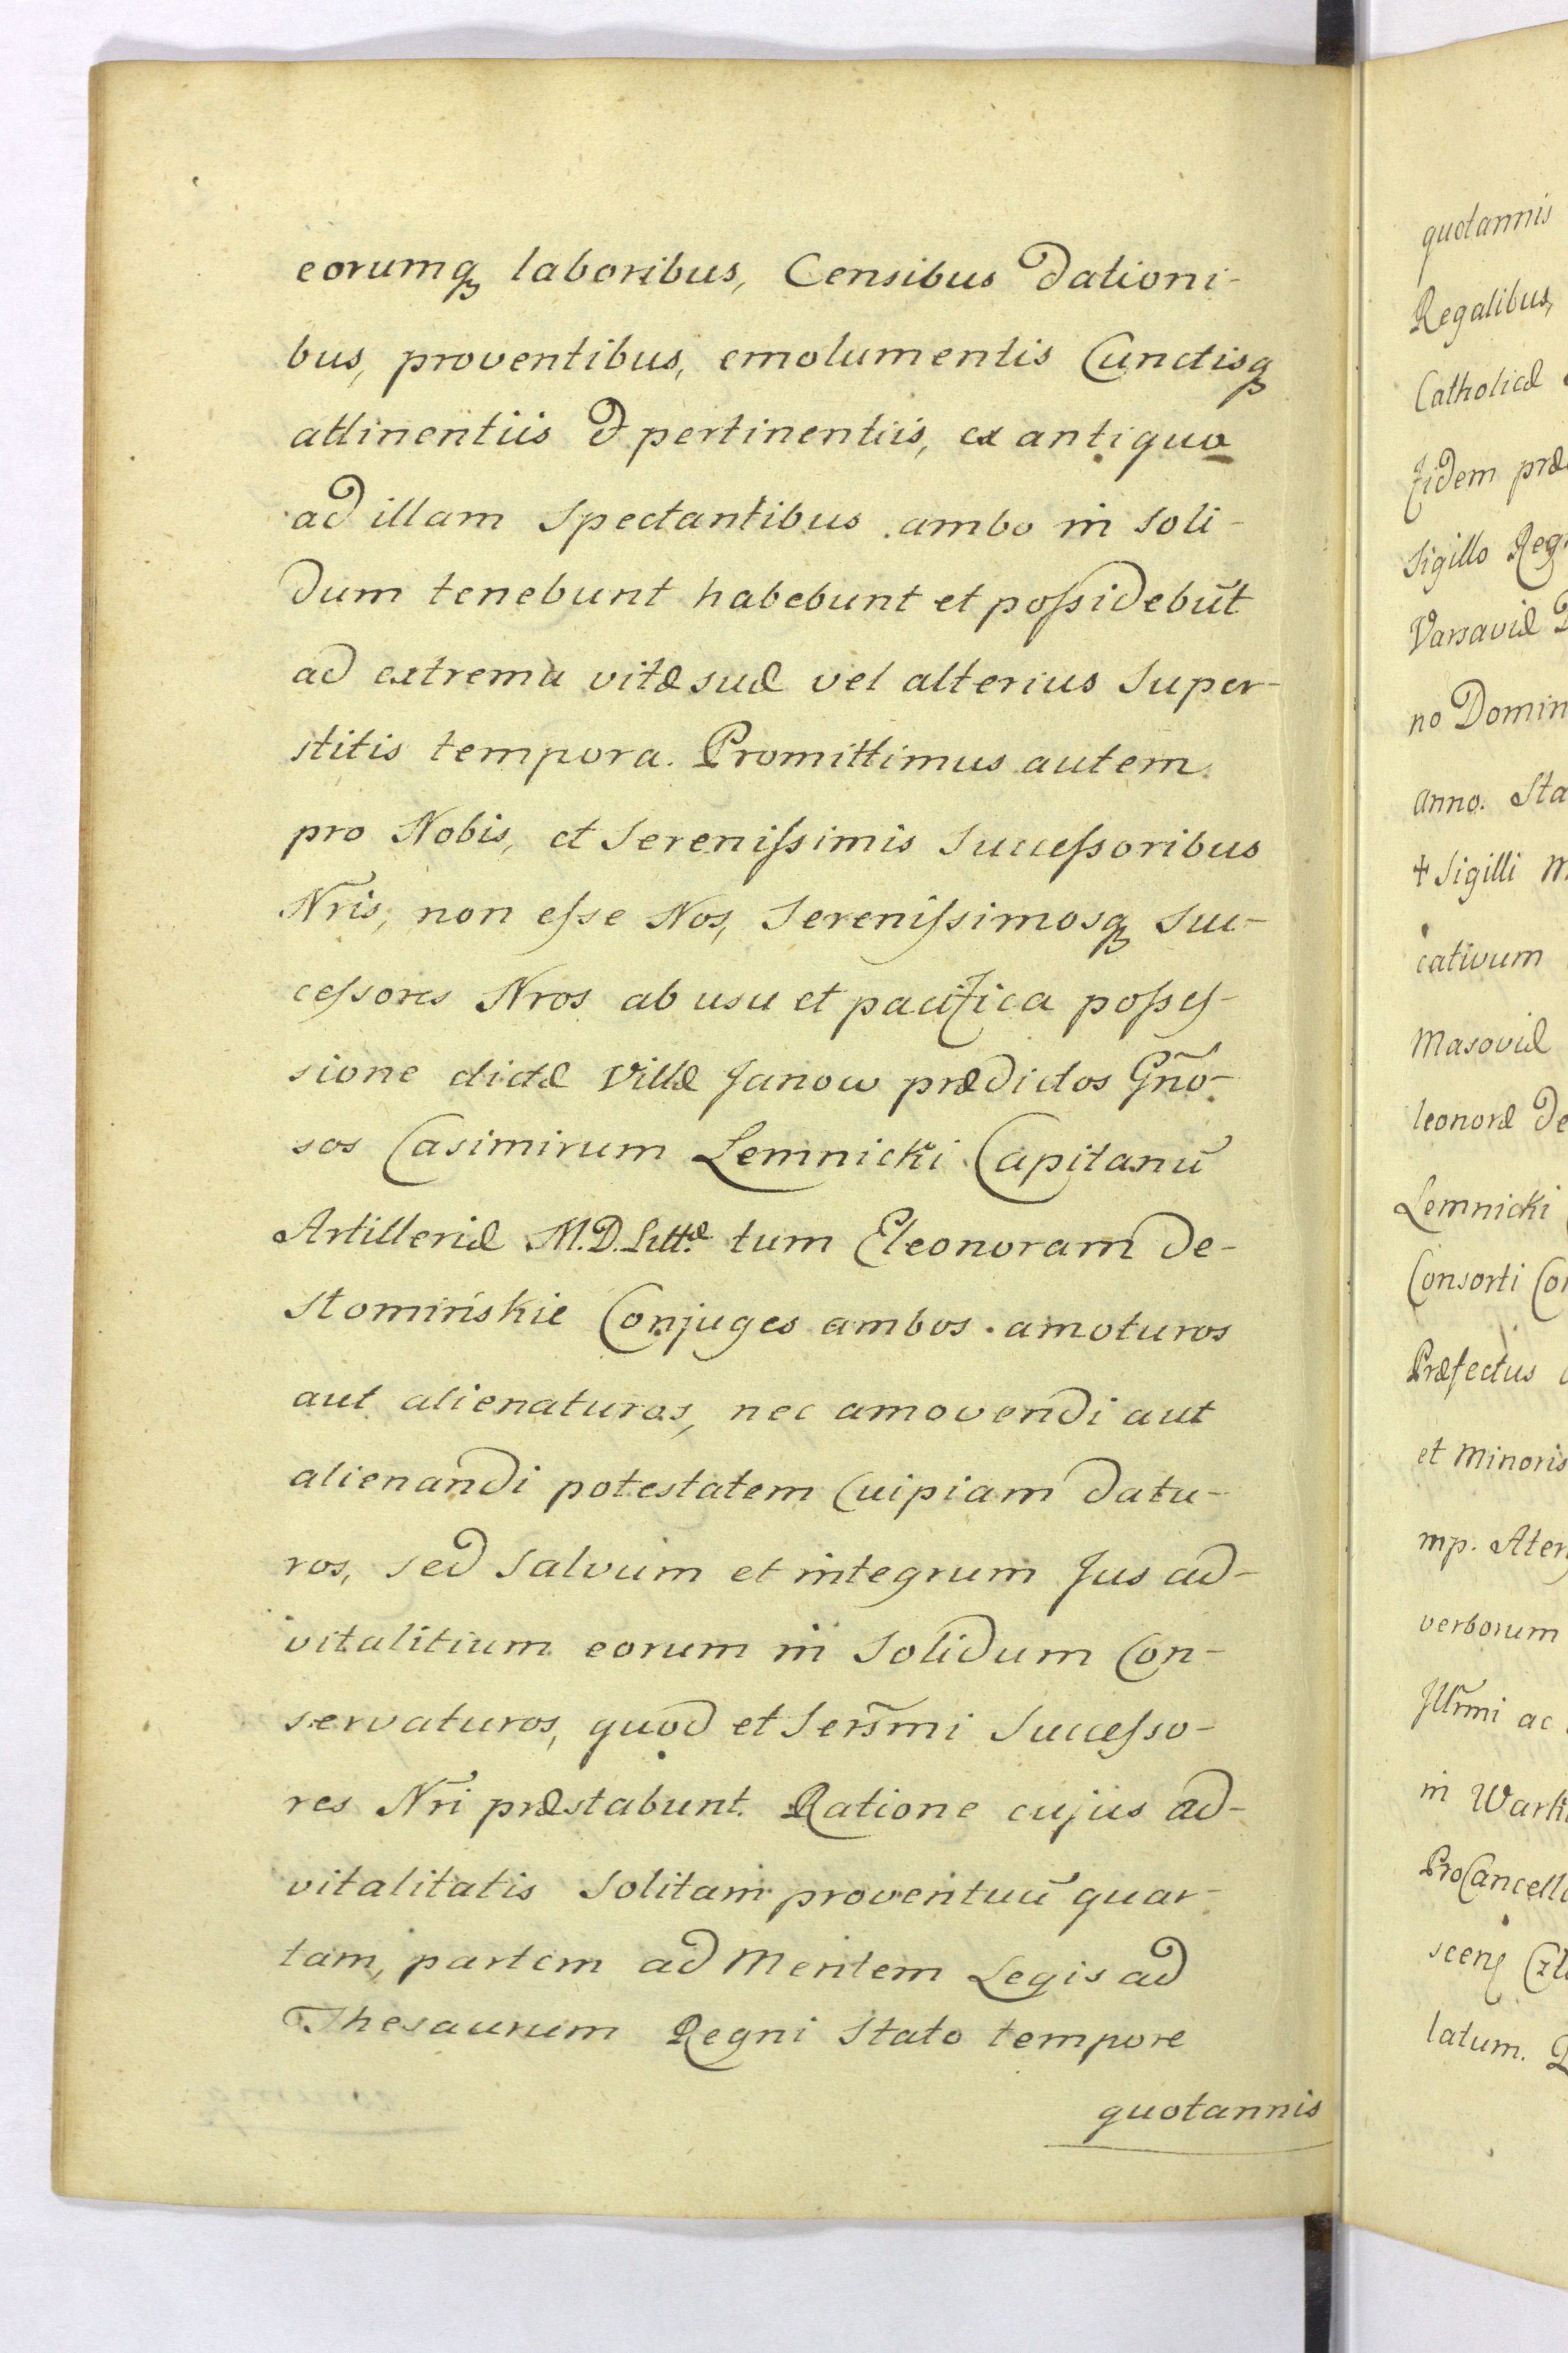 eorumq laboribus, Censibus dationi-
bus, proventibus, emolumentis Cunctisq
attinentiis et pertinentiis, ex antiquo
ad illam Spectantibus ambo in Soli-
dum tenebunt habebunt et poſsidebūt
ad extrema vitæ suæ vel alterius Super-
stitis tempora. Promittimus autem
pro Nobis, et Sereniſsimis Succeſsoribus
Nr̃is, non eſse Nos, Sereniſsimosq Suc-
ceſsores Nros ab usu et pacifica poſseſ-
sione dictæ Villæ Janow prædictos Gño-
sos Casimirum Lemnicki Capitanū
Artilleriæ M.D.Litt.æ tum Eleonoram de-
Stomińskie Conjuges ambos amoturos
aut alienaturos, nec amovendi aut
alienandi potestatem Cuipiam datu-
ros, sed Salvum et integrum Jus ad-
vitalitium eorum in Solidum Con-
servaturos, quod et Sers̃mi Succeſso-
res Nr̃i præstabunt. Ratione cujus ad-
vitalitatis Solitam proventuū quar-
tam, partem ad Mentem Legis ad
Thesaurum Regni Stato tempore
quotannis
quotannis
Regalibus,
Catholicæ
Fidem præ
Sigillo Reg
Varsaviæ
no Domin
Anno. Sta
+ Sigilli M
cativum
Masoviæ
leonoræ de
Lemnicki
Consorti Con
Præfectus
et Minoris
mp. Ater
verborum
Jllr̃mi ac
in Wark
ProCancell
scen
latum.